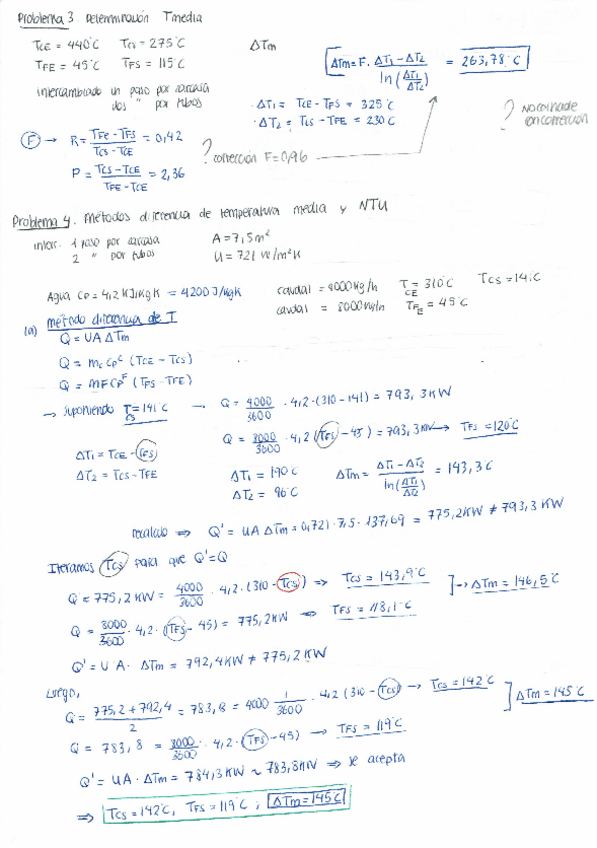 Problema 3 Determinación Tmedia
TCE = 440°C TCS = 275°C ΔTm
TFE = 45°C TFS = 115°C
ΔTm = F · (ΔT1 - ΔT2) / ln(ΔT1/ΔT2) = 263,78°C
intercambiado un paso por carcasa
dos " por tubos
· ΔT1 = TCE - TFS = 325°C
· ΔT2 = TCS - TFE = 230°C
? No coincide con corrección
F → R = (TFE - TFS) / (TCS - TCE) = 0,42
P = (TCS - TCE) / (TFE - TCE) = 2,36
? corrección F = 0,96
Problema 4. Métodos diferencia de temperatura media y NTU
inter. 1 paso por carcasa A = 7,5 m²
2 " por tubos U = 721 W/m²K
Agua Cp = 4,2 KJ/Kg K = 4200 J/KgK
caudal = 4000 Kg/h TCE = 310°C TCS = 141°C
caudal = 8000 TFE = 45°C
(a) método diferencia de T
Q = UA ΔTm
Q = mc CpC (TCE - TCS)
Q = mF CpF (TFS - TFE)
→ suponiendo TCS = 141°C → Q = 4000/3600 · 4,2 · (310 - 141) = 793,3 KW
Q = 8000/3600 · 4,2 (TFS - 45) = 793,3 KW → TFS = 120°C
ΔT1 = TCE - TFS
ΔT2 = TCS - TFE
ΔT1 = 190°C
ΔT2 = 96°C
ΔTm = (ΔT1 - ΔT2) / ln(ΔT1/ΔT2) = 143,3°C
recalculo ⇒ Q' = UA ΔTm = 0,721 · 7,5 · 137,69 = 775,2 KW ≠ 793,3 KW
Iteramos TCS para que Q' = Q
Q = 775,2 KW = 4000/3600 · 4,2 · (310 - TCS) ⇒ TCS = 143,9°C
Q = 8000/3600 · 4,2 · (TFS - 45) = 775,2 KW ⇒ TFS = 118,1°C
] → ΔTm = 146,5°C
Q' = U A · ΔTm = 792,4 KW ≠ 775,2 KW
Luego,
Q = (775,2 + 792,4) / 2 = 783,8 = 4000 1/3600 · 4,2 (310 - TCS) → TCS = 142°C
Q = 783,8 = 8000/3600 · 4,2 · (TFS - 45) → TFS = 119°C
] ΔTm = 145°C
Q' = UA · ΔTm = 784,3 KW ~ 783,8 KW ⇒ se acepta
⇒ TCS = 142°C, TFS = 119°C ; ΔTm = 145°C